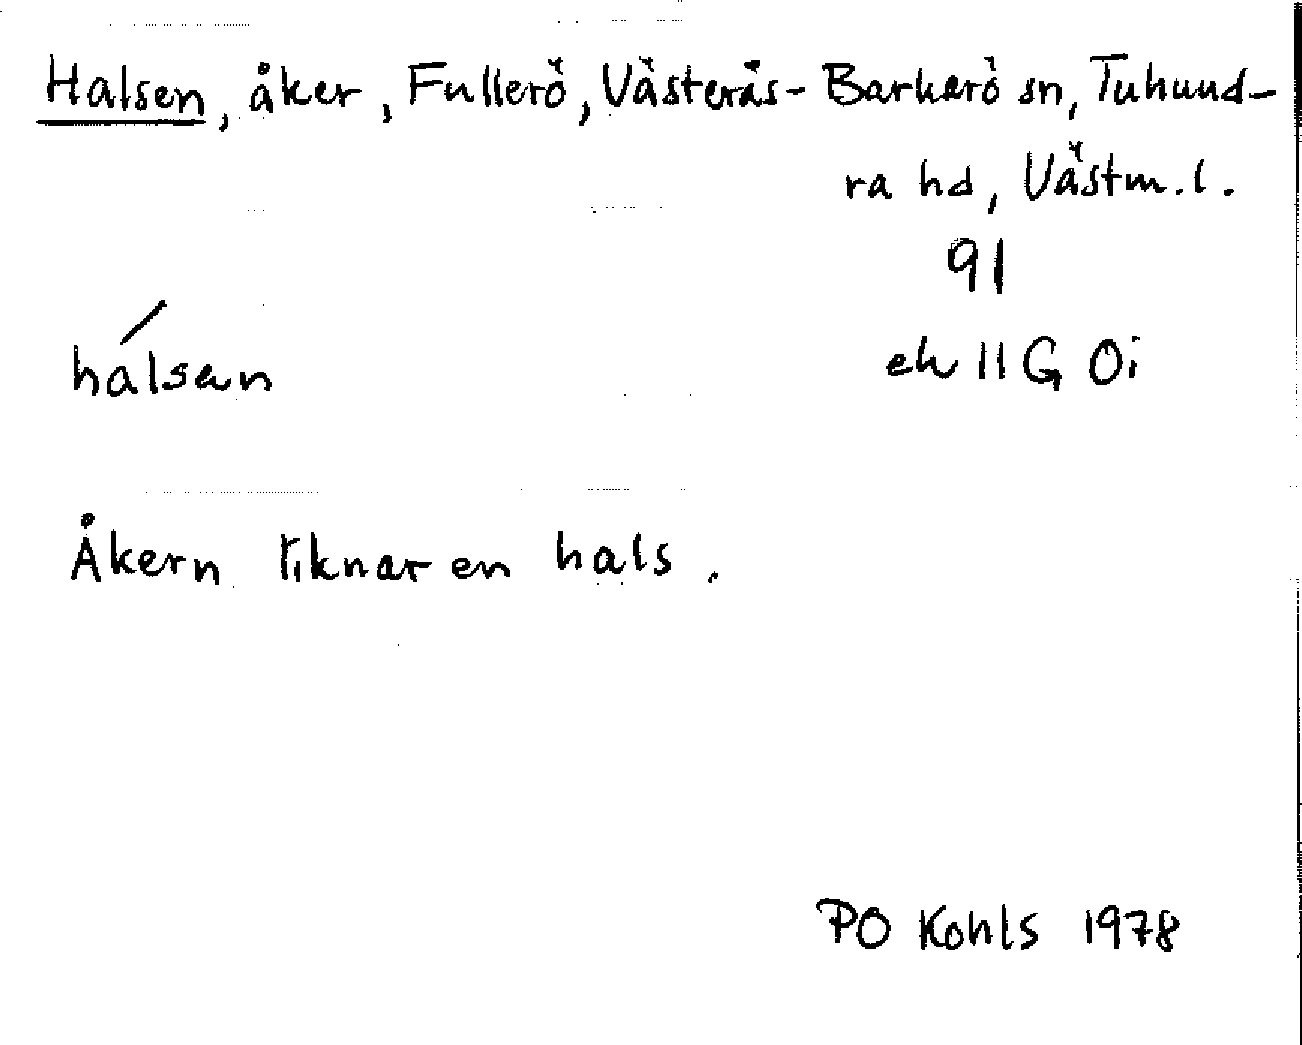 Halsen, åker, Fullerö, Västerås-Barkarö sn, Tuhund-
ra hd, Västm.l.
91
hálsen
ek 11G 0i
Åkern liknar en hals.
PO Kohls 1978